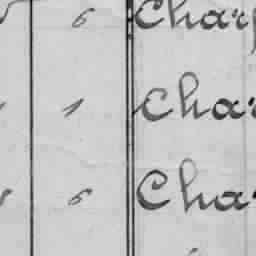 6 Char
1 Char
6 Char